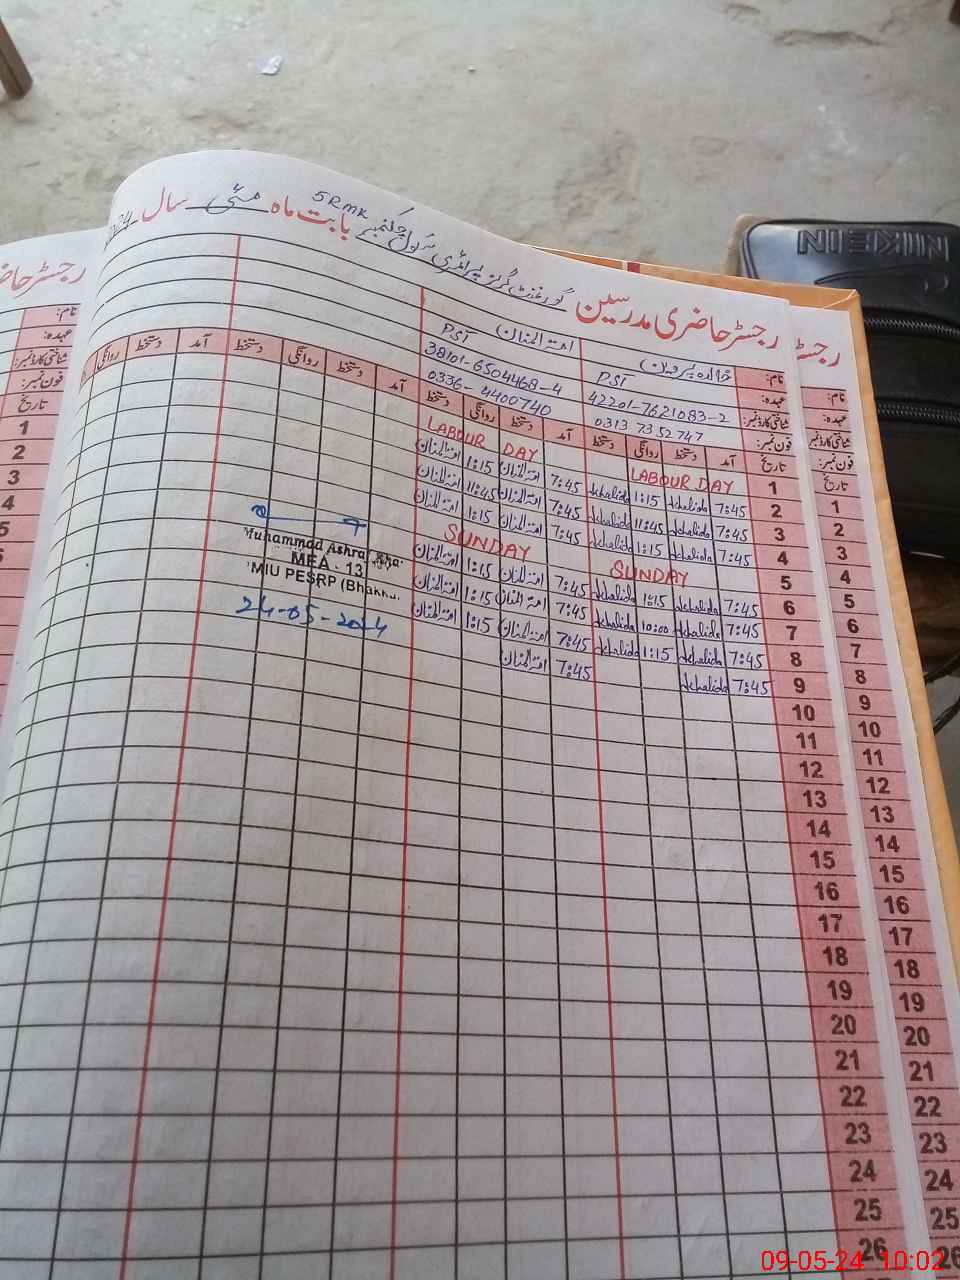 رجسٹر حاضری مدرسین گورنمنٹ گرلز پرائمری سکول چک نمبر 5RMK بابت ماہ مئی سال
نام: خالدہ پروین امتہ المنان
عہدہ: PST PST
شناختی کارڈ نمبر: 42201-7621083-2 38101-6504468-4
فون نمبر: 0313 7352747 0336-4400740
تاریخ آمد دستخط روانگی دستخط آمد دستخط روانگی دستخط آمد دستخط روانگی دستخط آمد دستخط روانگی
1 LABOUR DAY LABOUR DAY
2 7:45 Khalida 1:15 Khalida 7:45 امتہ المنان 1:15 امتہ المنان
3 7:45 Khalida 11:45 Khalida 7:45 امتہ المنان 11:45 امتہ المنان
4 7:45 Khalida 1:15 Khalida 7:45 امتہ المنان 1:15 امتہ المنان
5 SUNDAY SUNDAY
6 7:45 Khalida 1:15 Khalida 7:45 امتہ المنان 1:15 امتہ المنان
7 7:45 Khalida 10:00 Khalida 7:45 امتہ المنان 1:15 امتہ المنان
8 7:45 Khalida 1:15 Khalida 7:45 امتہ المنان 1:15 امتہ المنان
9 7:45 Khalida 7:45 امتہ المنان
10
11
12
13
14
15
16
17
18
19
20
21
22
23
24
25
26
Muhammad Ashraf
MEA - 13
MIU PESRP
24-05-2024
رجسٹر
نام:
عہدہ:
شناختی کارڈ نمبر:
فون نمبر:
تاریخ
1
2
3
4
5
6
7
8
9
10
11
12
13
14
15
16
17
18
19
20
21
22
23
24
25
26
رجسٹر حاضری
نام:
عہدہ:
شناختی کارڈ نمبر:
فون نمبر:
تاریخ
1
2
3
4
5
NIKEIN
09-05-24 10:02